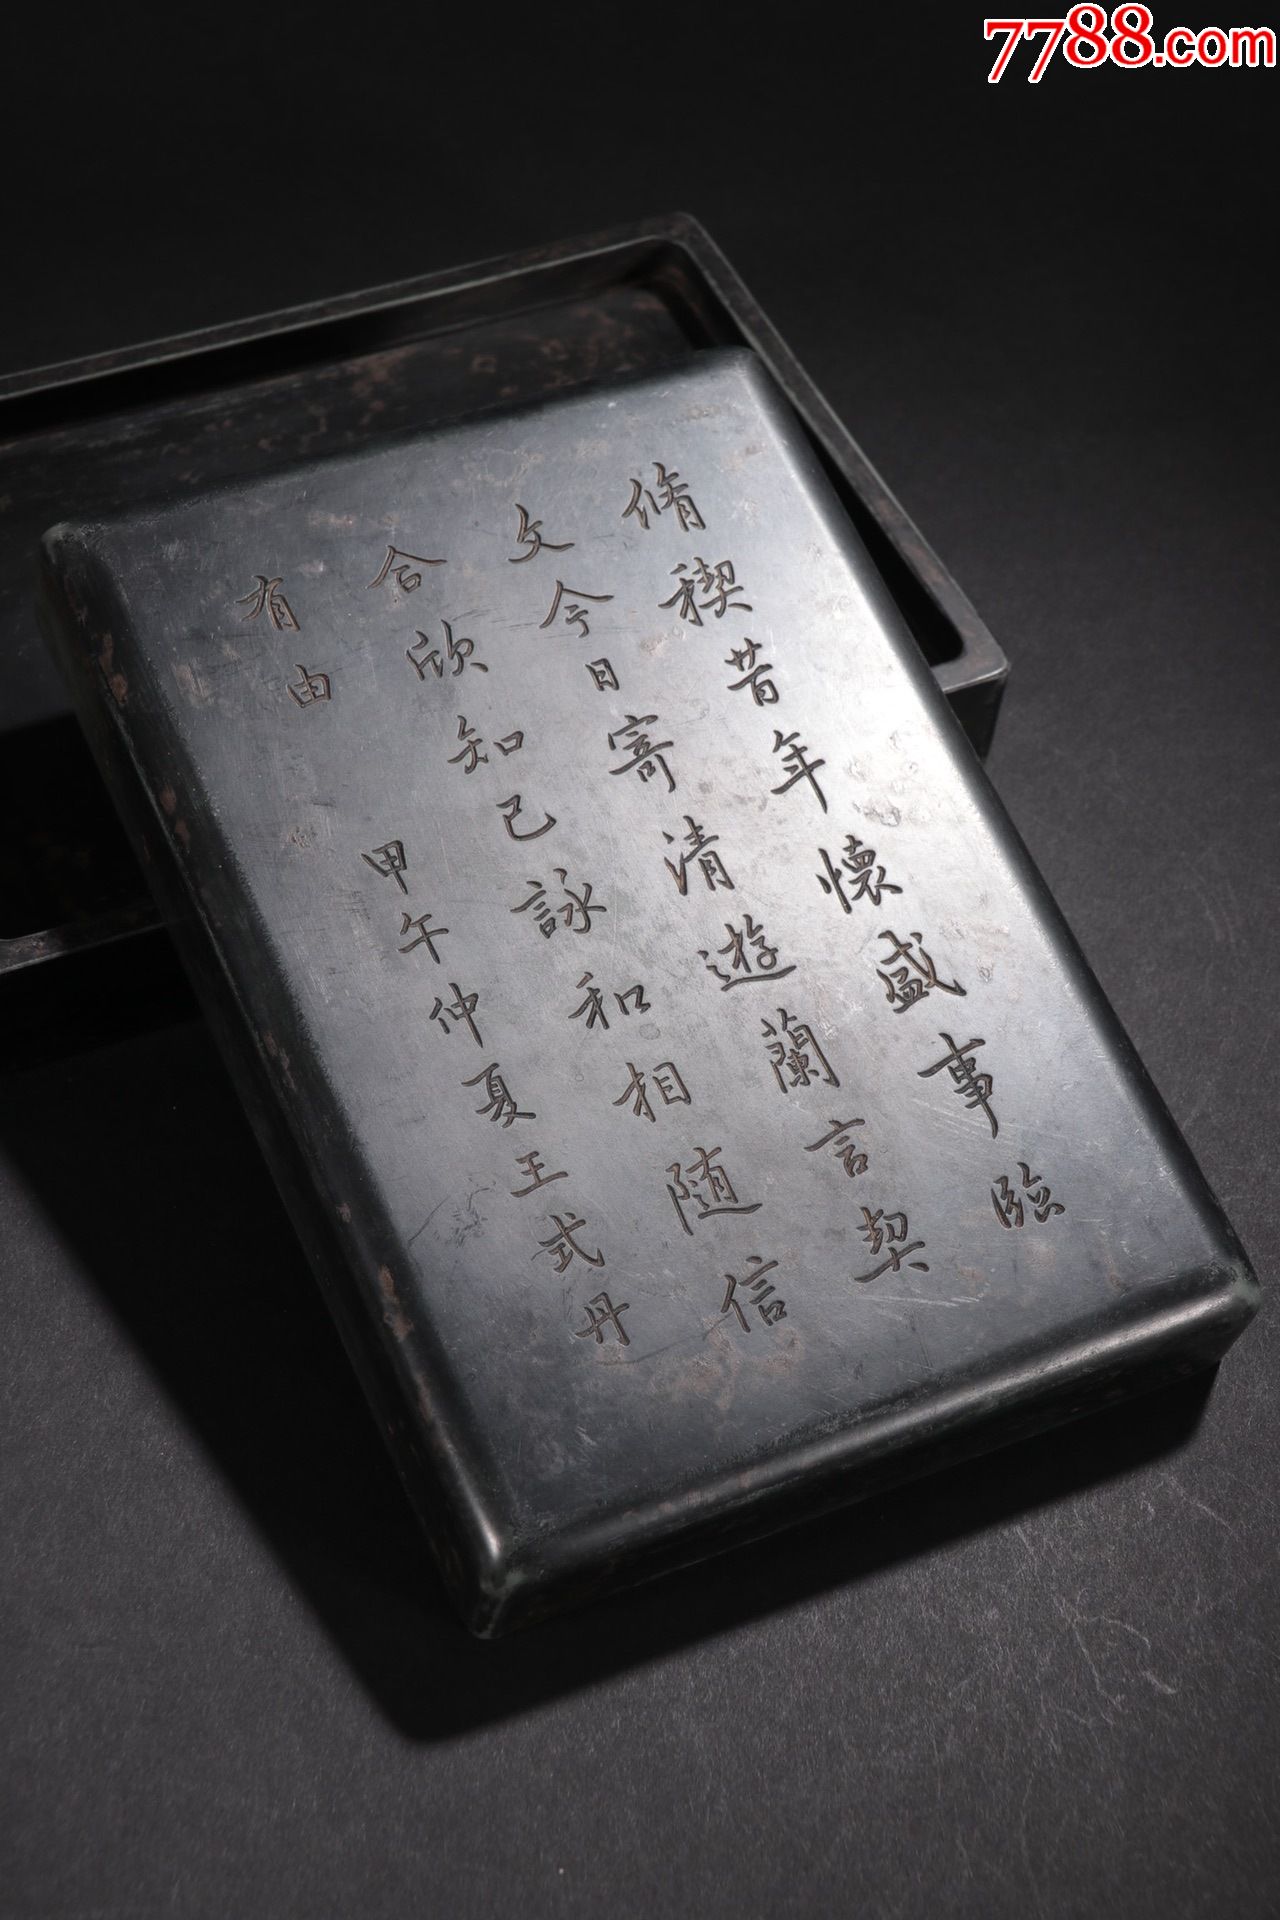 7788.com
脩稧昔年懷盛事臨
文今日寄清遊蘭言契
合欣知己詠和相隨信
有由
甲午仲夏王式丹